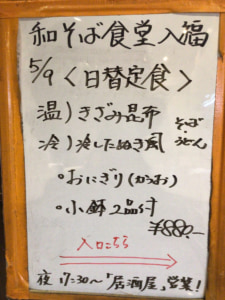 和そば食堂 入福
5/9 〈日替定食〉
温)きざみ昆布
冷)冷したぬき風
そば・うどん
・おにぎり(かつお)
・小鉢2品付
¥880.-
入口こちら
夜17:30〜「居酒屋」営業!